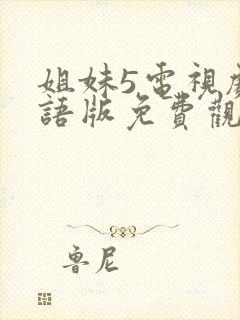 姐妹5,電視劇
語版免費觀
魯尼